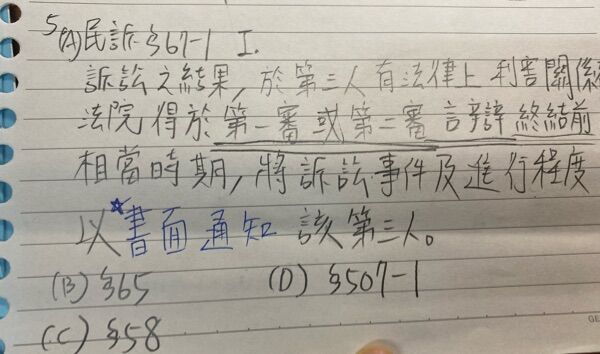 5. (A) 民訴§67-1 I.
訴訟之結果,於第三人有法律上利害關係
法院得於第一審或第二審言詞辯終結前
相當時期,將訴訟事件及進行程度
以★書面通知 該第三人。
(B) §65 (D) §507-1
(C) §58
GE